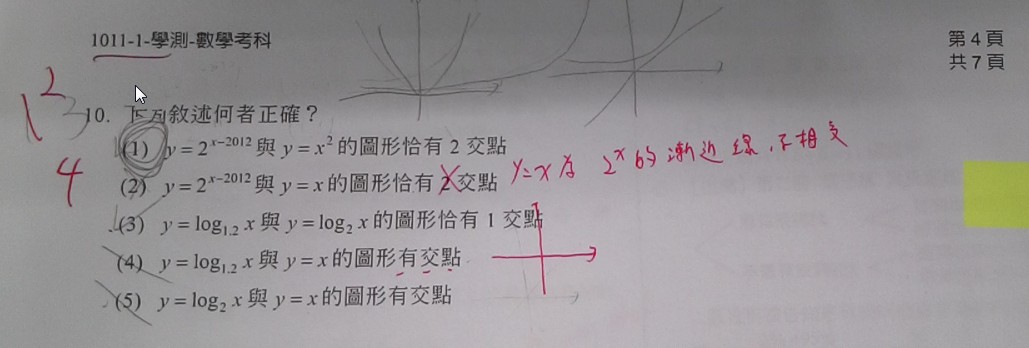 1011-1-學測-數學考科
第 4 頁
共 7 頁
1 2 3 4
10. 下列敘述何者正確？
(1) y = 2^{x-2012} 與 y = x² 的圖形恰有 2 交點
(2) y = 2^{x-2012} 與 y = x 的圖形恰有 2 交點 y=x 為 2^x 的漸近線，不相交
(3) y = log_{1.2} x 與 y = log_2 x 的圖形恰有 1 交點
(4) y = log_{1.2} x 與 y = x 的圖形有交點
(5) y = log_2 x 與 y = x 的圖形有交點